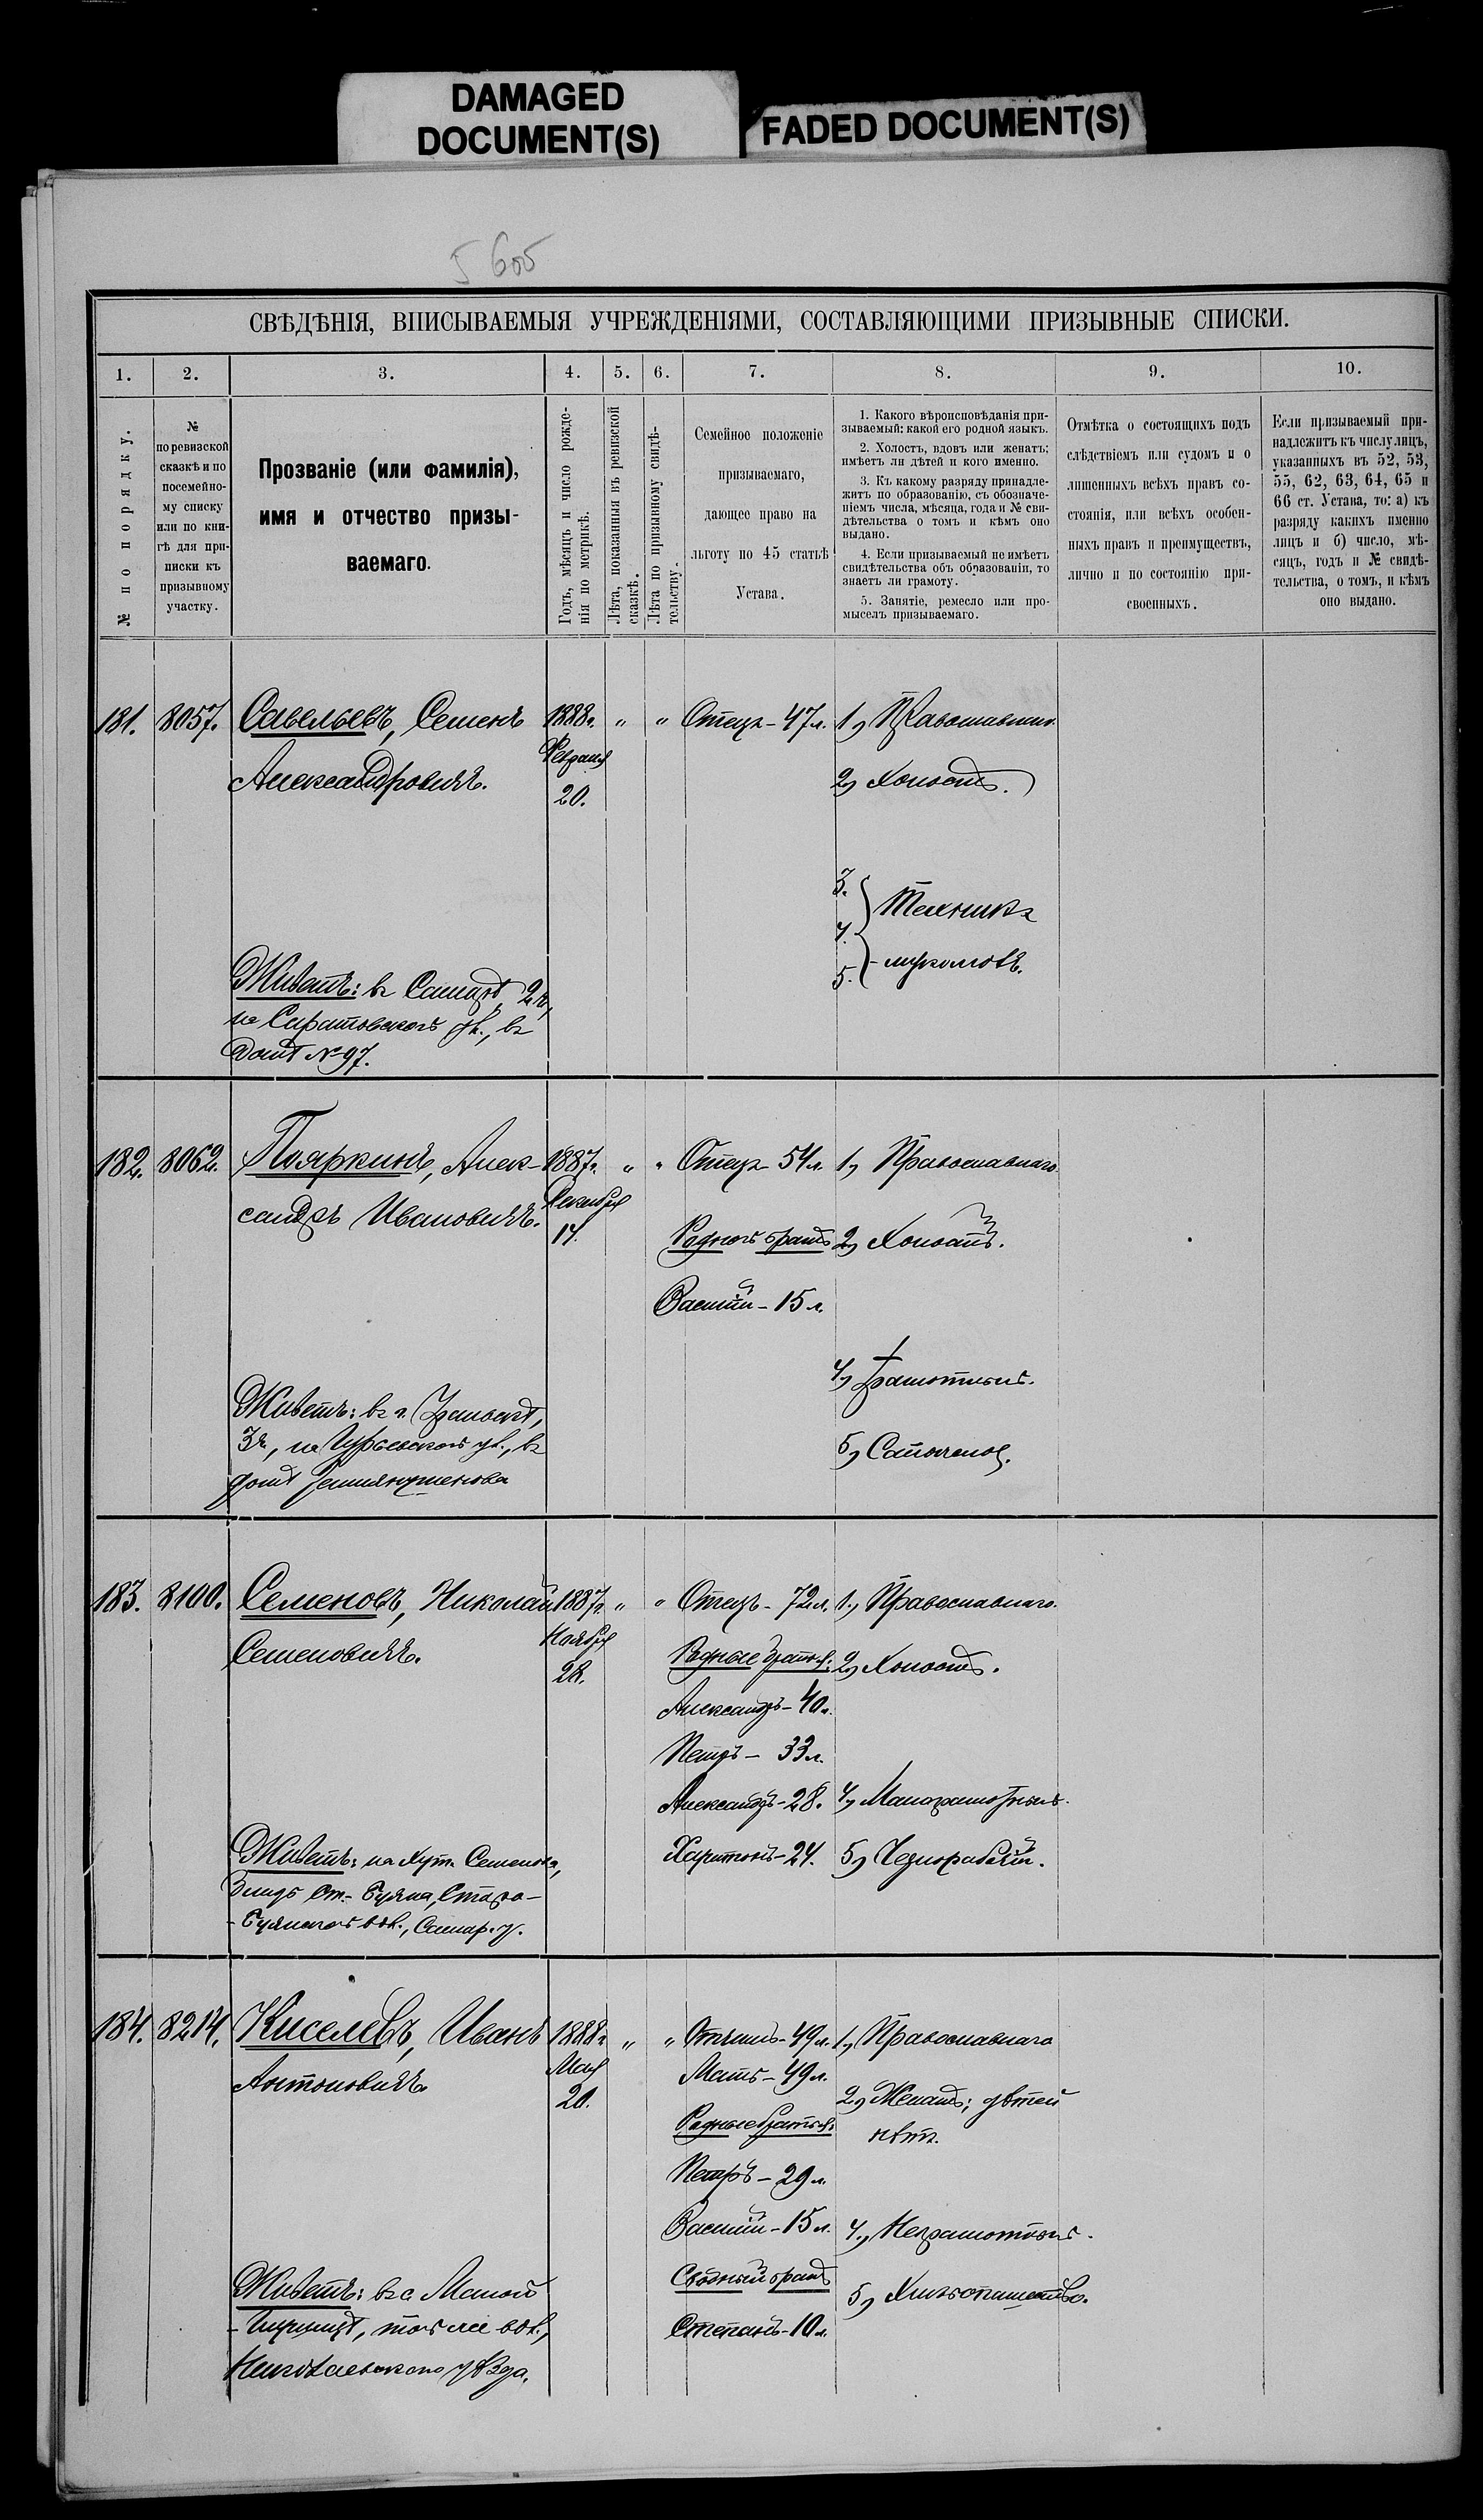 DAMAGED
DOCUMENT(S)
FADED DOCUMENT(S)
СВѢДѢНІЯ, ВПИСЫВАЕМЫЯ УЧРЕЖДЕНІЯМИ, СОСТАВЛЯЮЩИМИ ПРИЗЫВНЫЕ СПИСКИ.
1. 2. 3. 4. 5. 6. 7. 8. 9. 10.
№ по порядку.
№
по ревизской
сказкѣ и по
посемейно-
му списку
или по кни-
гѣ для при-
писки къ
призывному
участку.
Прозваніе (или фамилія),
имя и отчество призы-
ваемаго.
Годъ, мѣсяцъ и число рожде-
нія по метрикѣ.
Лѣта, показанныя въ ревизской
сказкѣ.
Лѣта по призывному свидѣ-
тельству.
Семейное положеніе
призываемаго,
дающее право на
льготу по 45 статьѣ
Устава.
1. Какого вѣроисповѣданія при-
зываемый: какой его родной языкъ.
2. Холостъ, вдовъ или женатъ;
имѣетъ ли дѣтей и кого именно.
3. Къ какому разряду принадле-
житъ по образованію, съ обозначе-
ніемъ числа, мѣсяца, года и № сви-
дѣтельства о томъ и кѣмъ оно
выдано.
4. Если призываемый не имѣетъ
свидѣтельства объ образованіи, то
знаетъ ли грамоту.
5. Занятіе, ремесло или про-
мыселъ призываемаго.
Отмѣтка о состоящихъ подъ
слѣдствіемъ или судомъ и о
лишенныхъ всѣхъ правъ со-
стоянія, или всѣхъ особен-
ныхъ правъ и преимуществъ,
лично и по состоянію при-
своенныхъ.
Если призываемый при-
надлежитъ къ числу лицъ,
указанныхъ въ 52, 53,
55, 62, 63, 64, 65 и
66 ст. Устава, то: а) къ
разряду какихъ именно
лицъ и б) число, мѣ-
сяцъ, годъ и № свидѣ-
тельства, о томъ, и кѣмъ
оно выдано.
181. 8057. Савельевъ, Семенъ
Александровичъ.
Живетъ: въ Самарѣ, 2 ч,
на Саратовской ул., въ
домѣ № 97.
1888 г.
Февраля
20.
" "
Отецъ - 47 л.
1) Православнаго
2) Холостъ.
3.
4.
5.
Техникъ
182. 8062. Пояркинъ, Алек-
сандръ Ивановичъ.
Живетъ: въ г. Уральскѣ,
3 ч, на Гурьевской ул., въ
домѣ
1887 г.
Декабря
14.
" "
Отецъ 54 л.
Родной братъ
Василій - 15 л.
1) Православнаго
2) Холостъ.
4) Грамотный.
5)
183. 8100. Семеновъ, Николай
Семеновичъ.
Живетъ: на хут. Семенова,
близъ Ст.- Буяна, Старо-
-Буянской вол., Самар. у.
1887 г.
Ноября
28.
" "
Отецъ - 72 л.
Родные братья:
Александръ - 40 л.
Петръ - 33 л.
Александръ - 28.
Харитонъ - 24.
1.) Православнаго.
2) Холостъ.
4) Малограмотный.
5) Чернорабочій.
184. 8214. Киселевъ, Иванъ
Антоновичъ
Живетъ: въ с. Малой
той же вол.,
Николаевскаго уѣзда.
1888 г.
Мая
20.
" "
Отчимъ - 49 л.
Мать - 49 л.
Родные братья:
Петръ - 29 л.
Василій - 15 л.
Сводный братъ
Степанъ - 10 л.
1) Православнаго
2) Женатъ; дѣтей
нѣтъ.
4.) Неграмотный.
5) Хлѣбопашество.